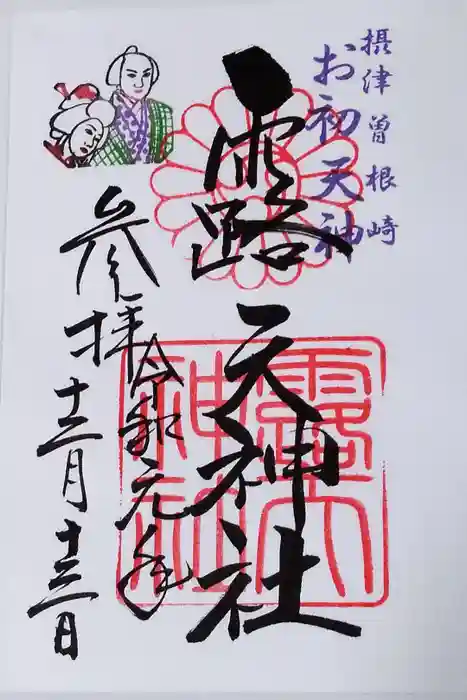 摂津曽根崎
お初天神
露天神社
令和元年
参拝
十二月十三日
露天神社